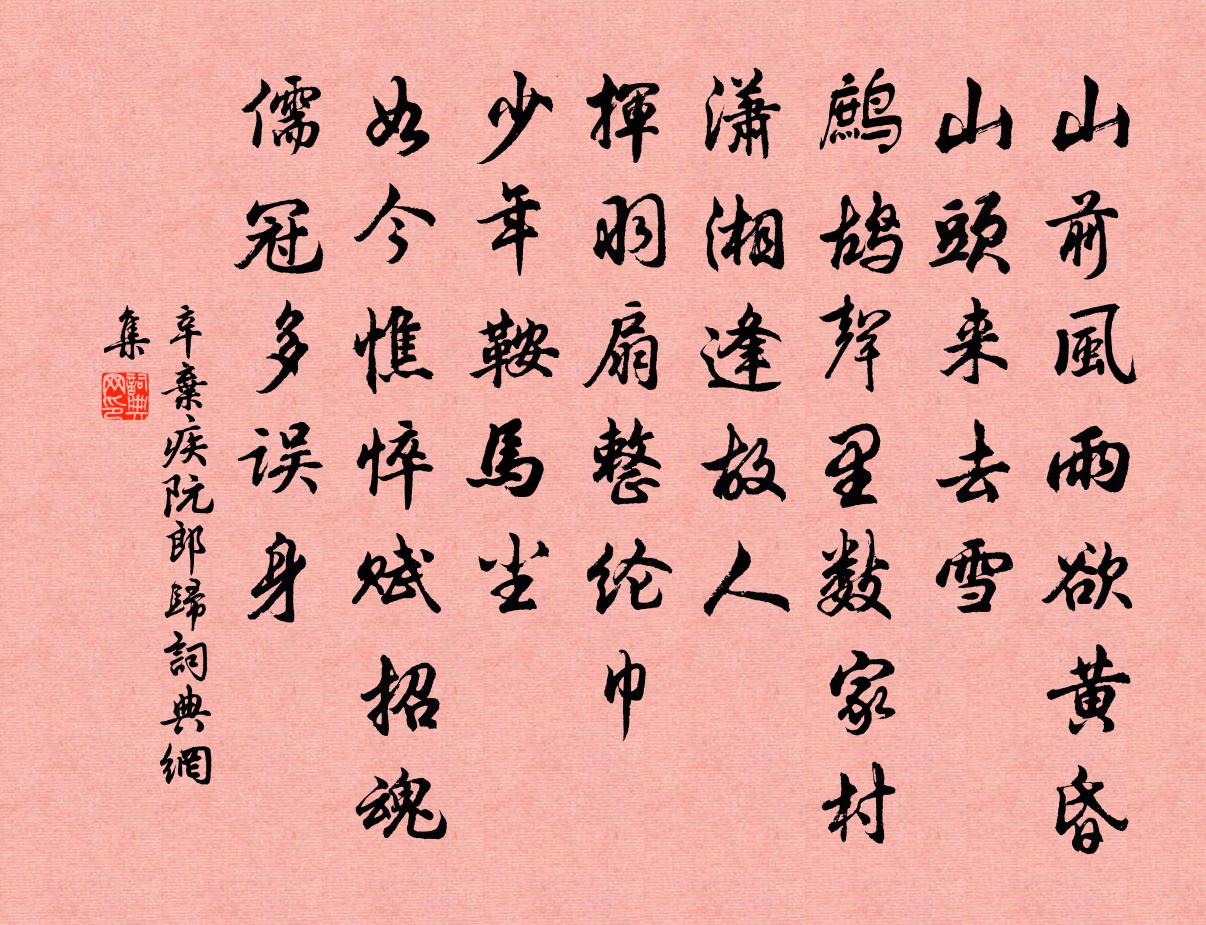 山前風雨欲黄昏
山頭来去雪
鷓鴣聲里數家村
潇湘逢故人
揮羽扇整纶巾
少年鞍馬尘
如今憔悴赋招魂
儒冠多误身
辛棄疾阮郎歸詞典網
集
詞典网印